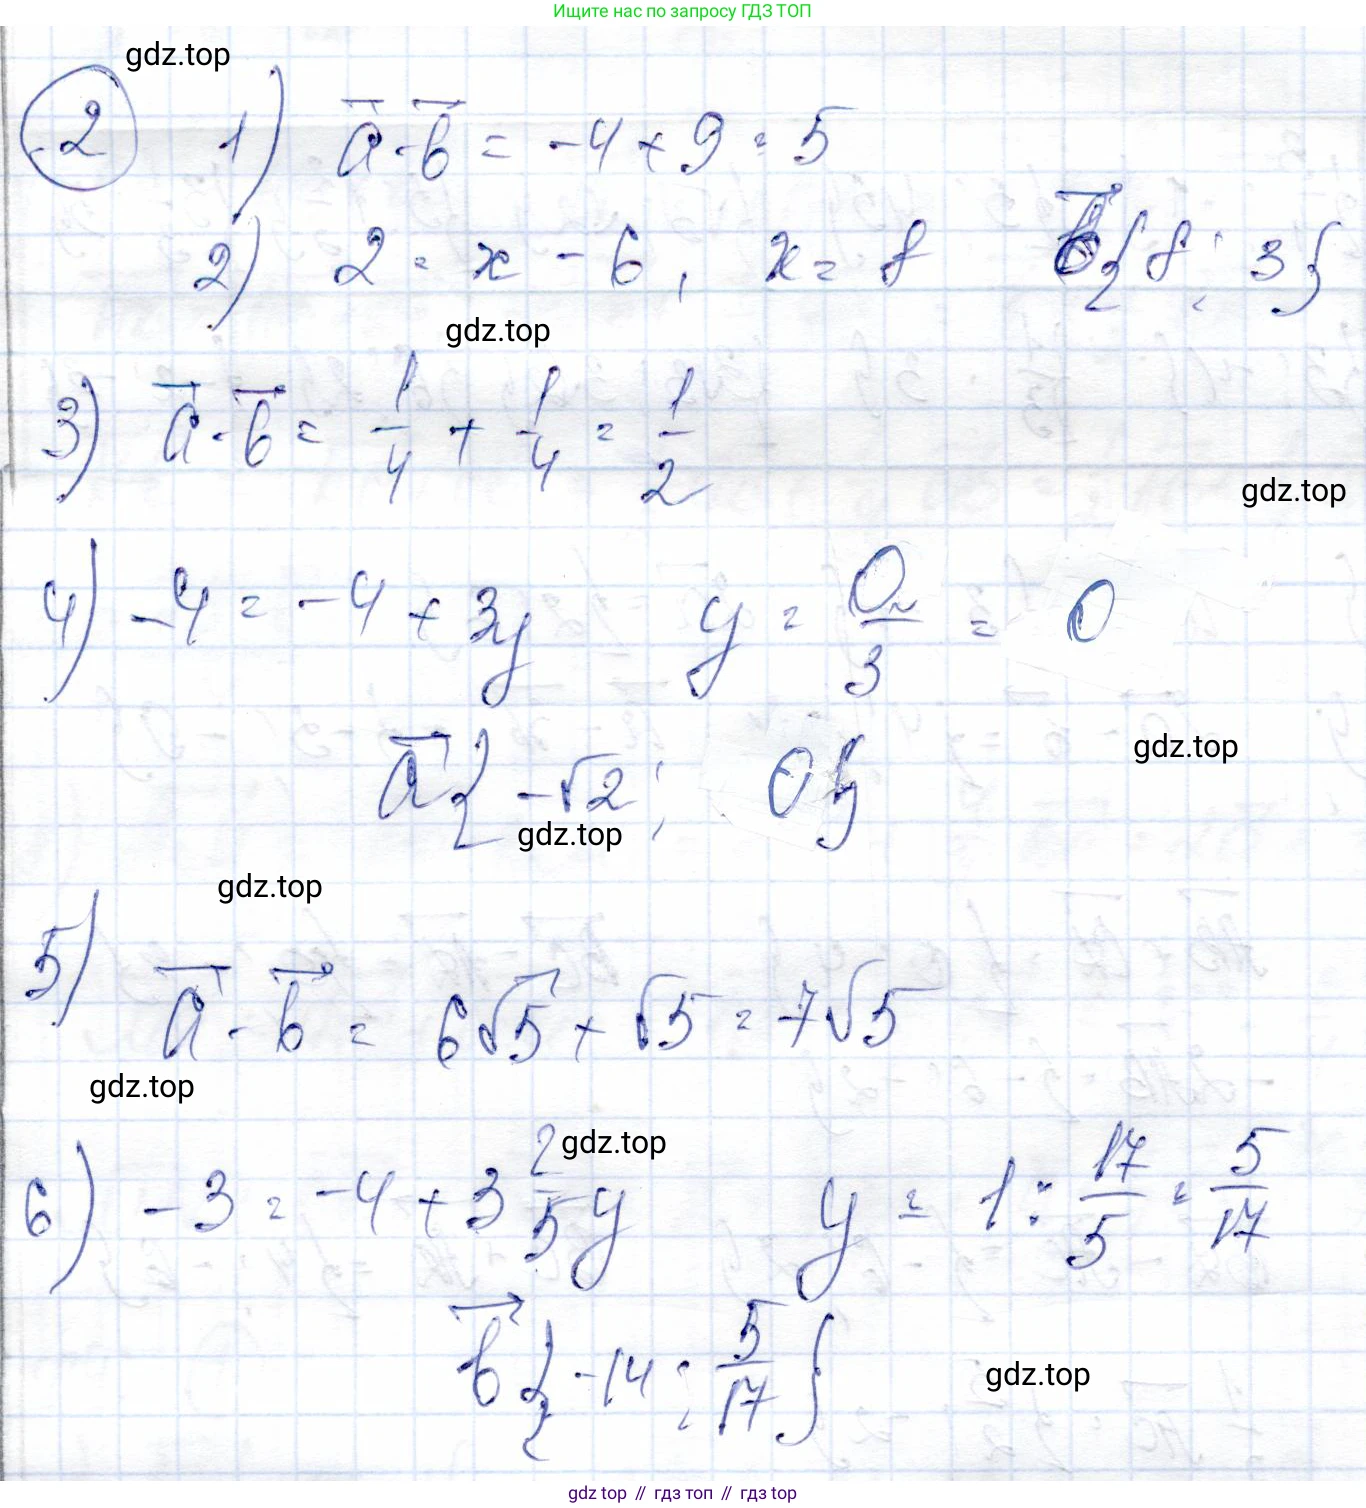 Ищите нас по запросу ГДЗ ТОП
gdz.top
2 1) a·b = -4 + 9 = 5
2) 2 = x - 6, x = 8 b{8; 3}
gdz.top
3) a·b = 1/4 + 1/4 = 1/2
gdz.top
4) -4 = -4 + 3y y = 0/3 = 0
gdz.top
a{-√2; 0}
gdz.top
gdz.top
5) a·b = 6√5 + √5 = 7√5
gdz.top
gdz.top
6) -3 = -4 + 3 2/5 y y = 1 : 17/5 = 5/17
b{-14; 5/17}
gdz.top
gdz top // гдз топ // гдз top